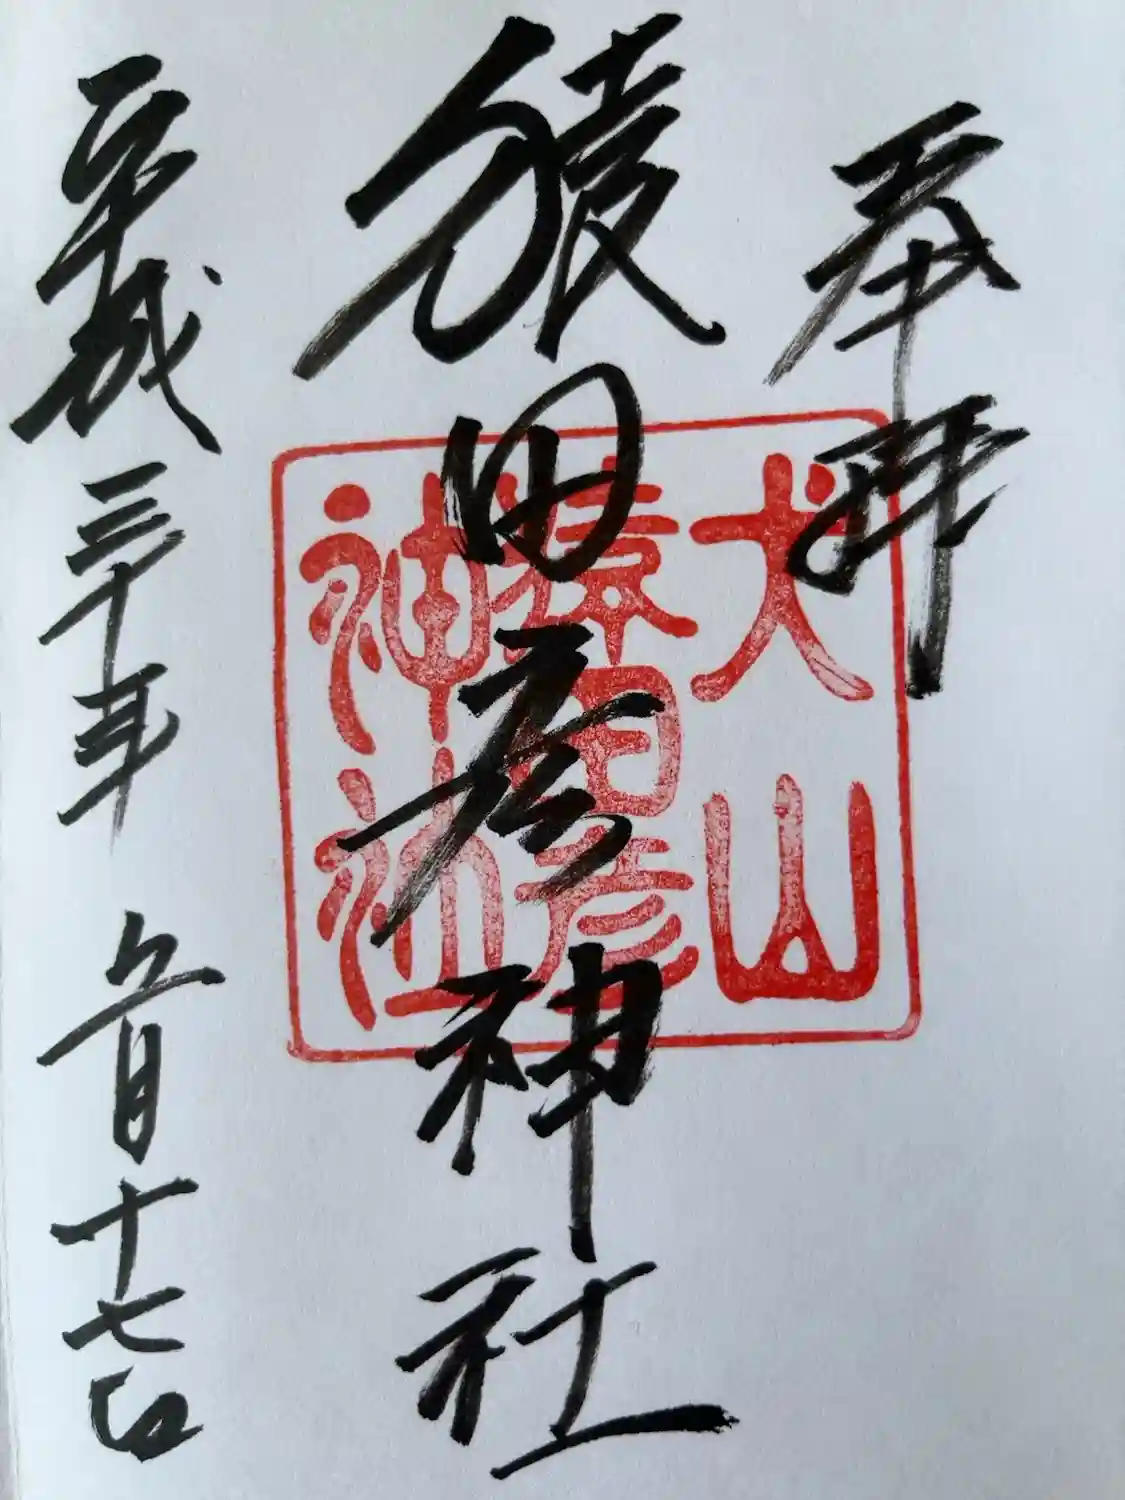 奉拝
猿田彦神社
平成三十年 六月十七日
犬山
猿田彦
神社